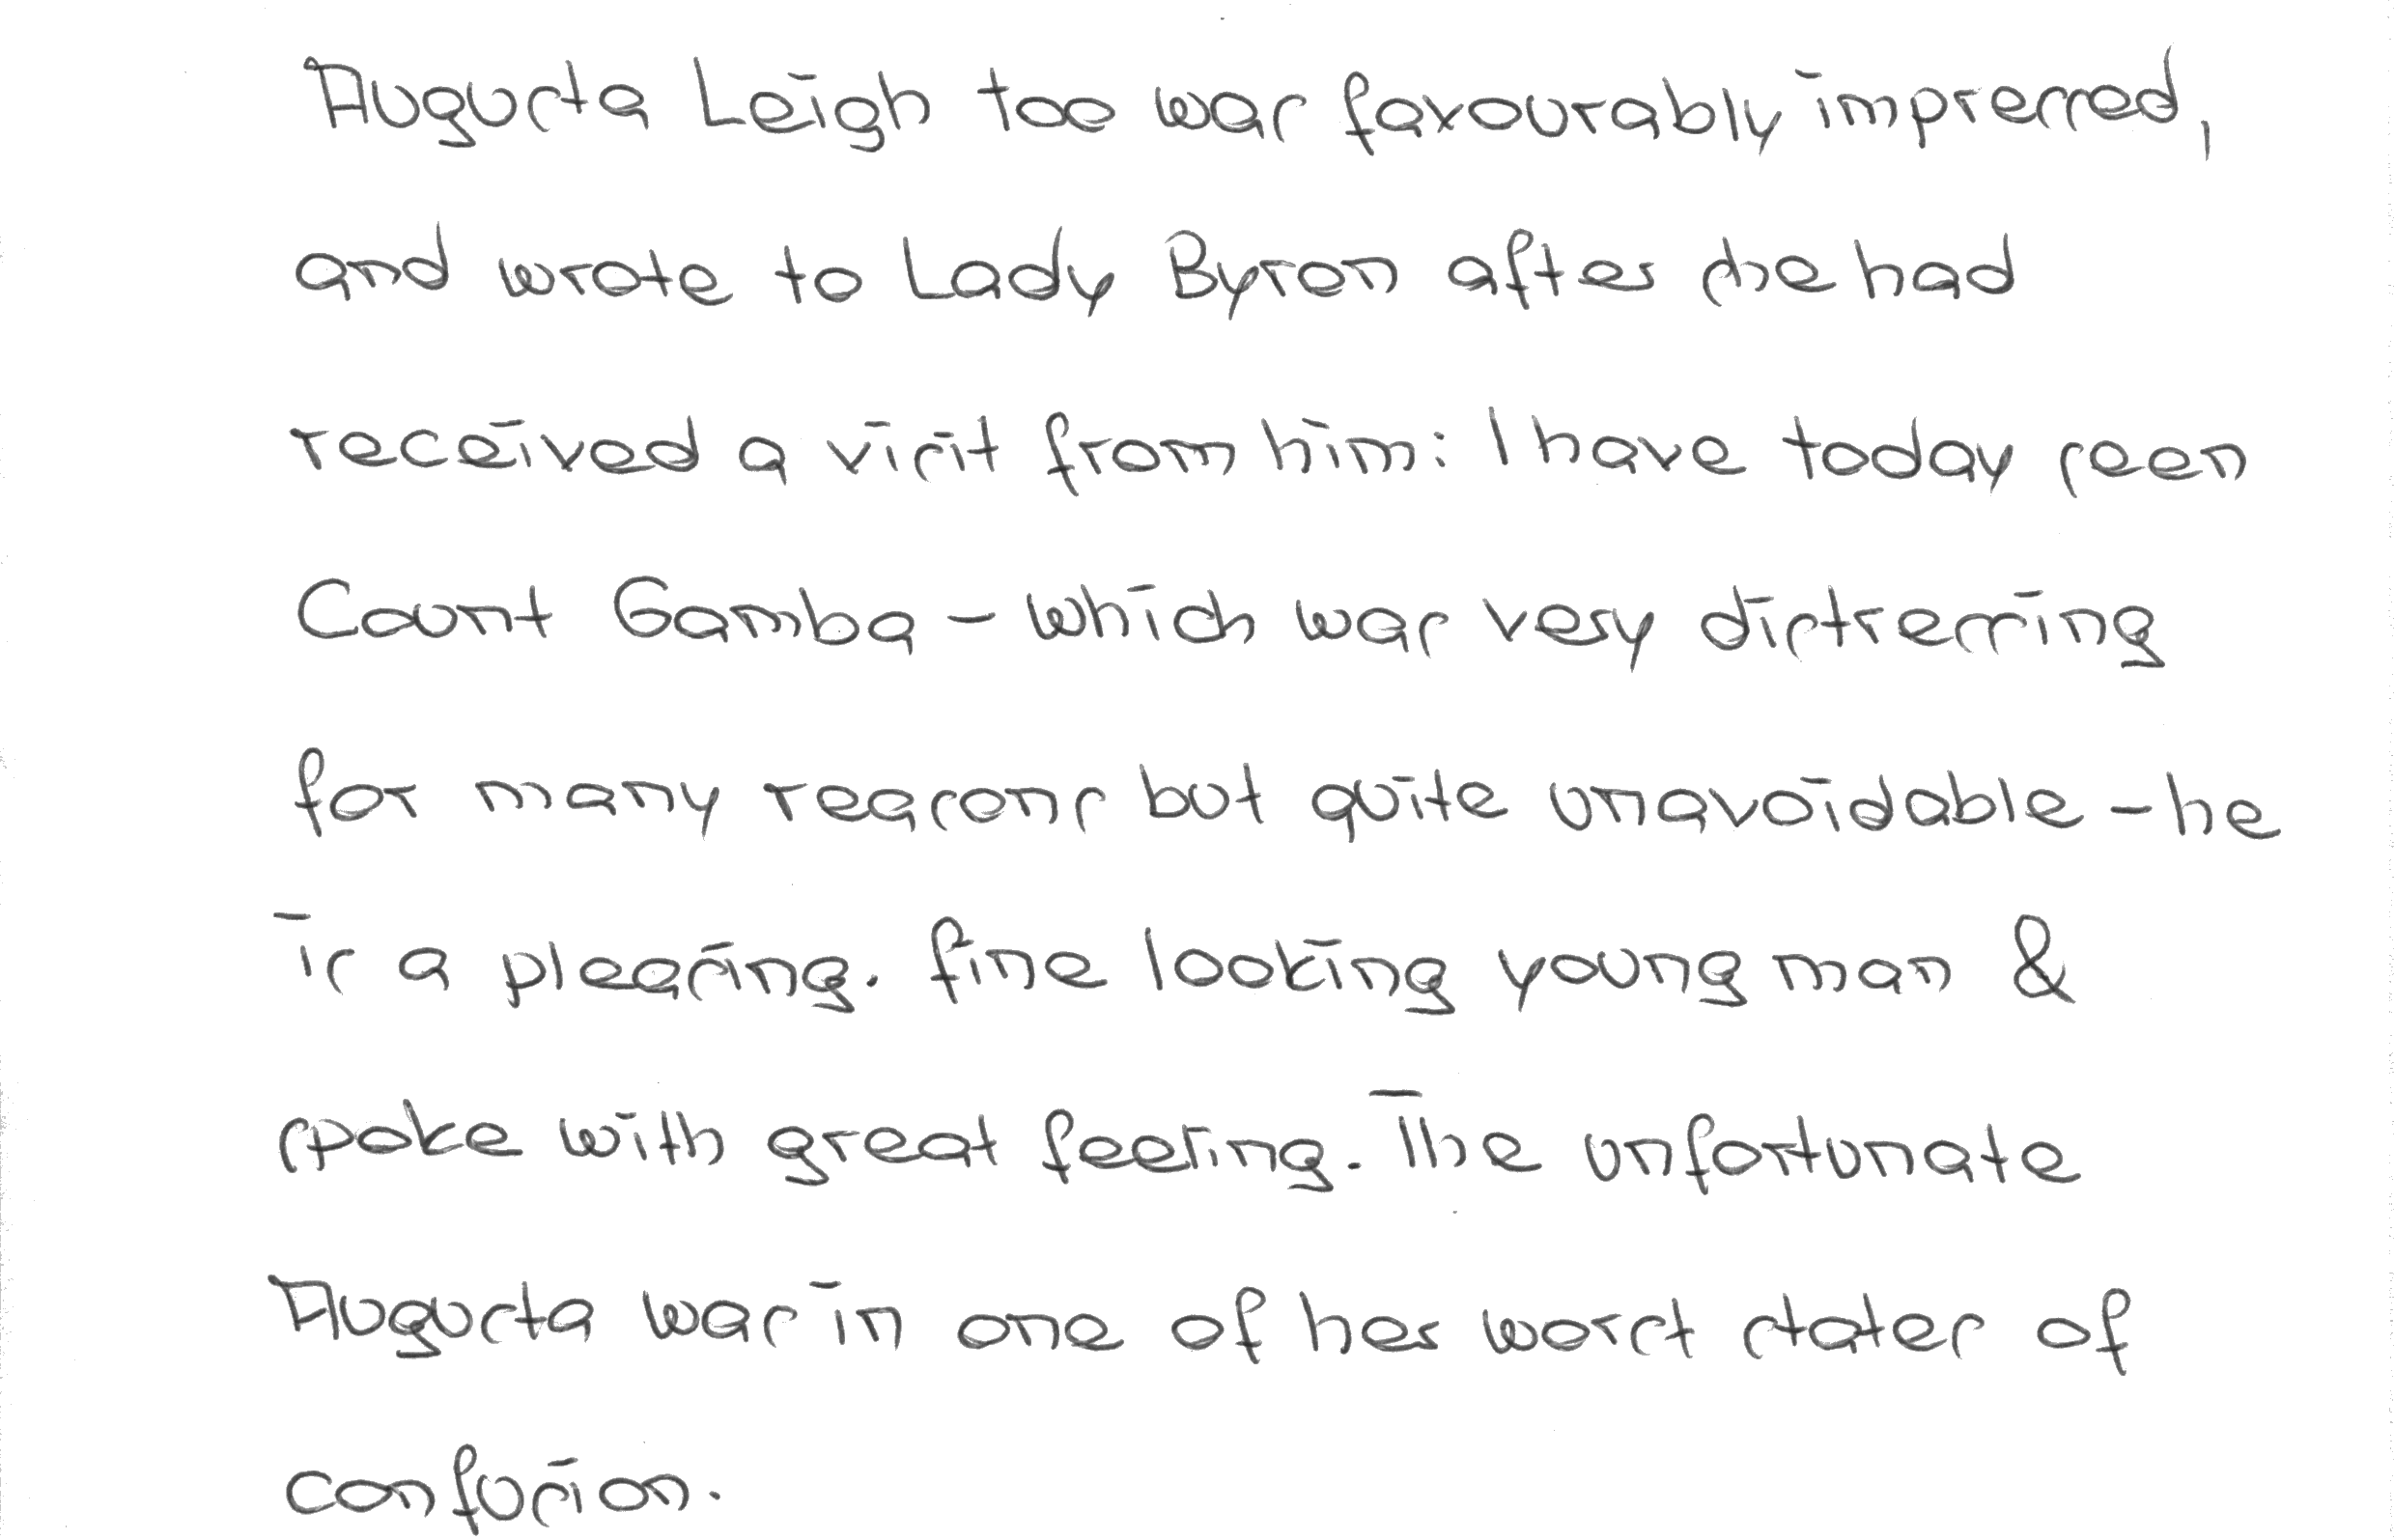 Augusta Leigh too was favourably impressed,
and wrote to Lady Byron after she had
received a visit from him: I have today seen
Count Gamba - which was very distressing
for many reasons but quite unavoidable - he
is a pleasing. fine looking young man &
spoke with great feeling. The unfortunate
Augusta was in one of her worst states of
confusion.